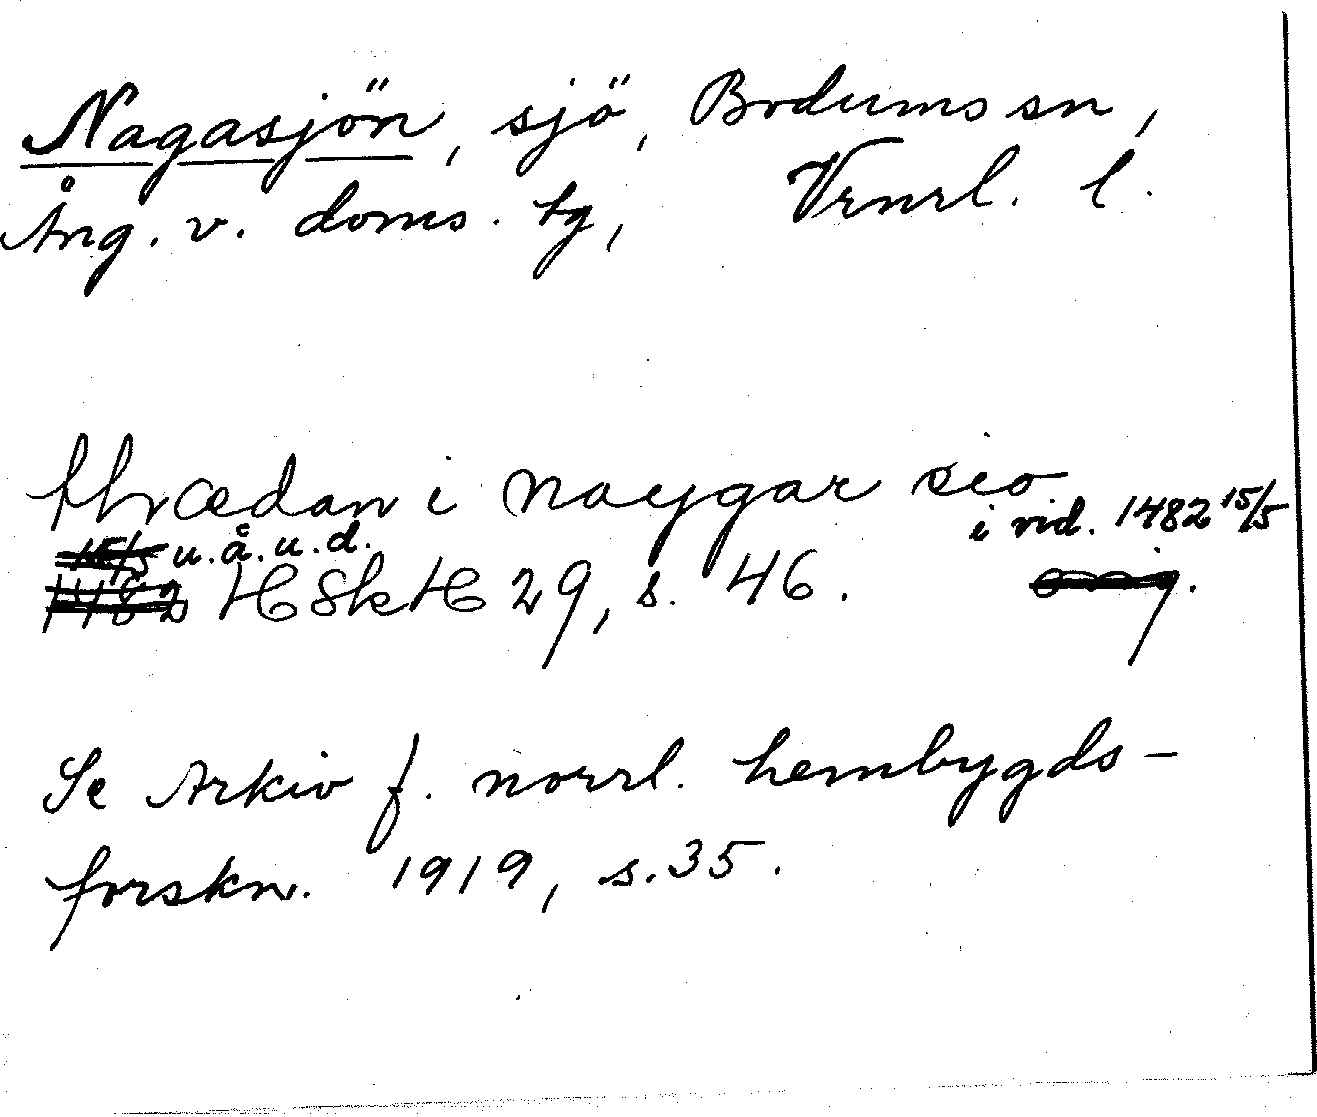 Nagasjön, sjö, Bodums sn,
Ång. v. doms. tg, Vrnrl. l.
fhrædan i naygar sio
i vid. 1482 15/5
15/5 u.å.u.d.
1482 HSkH 29, s. 46.
Se Arkiv f. norrl. hembygds-
forskn. 1919, s. 35.